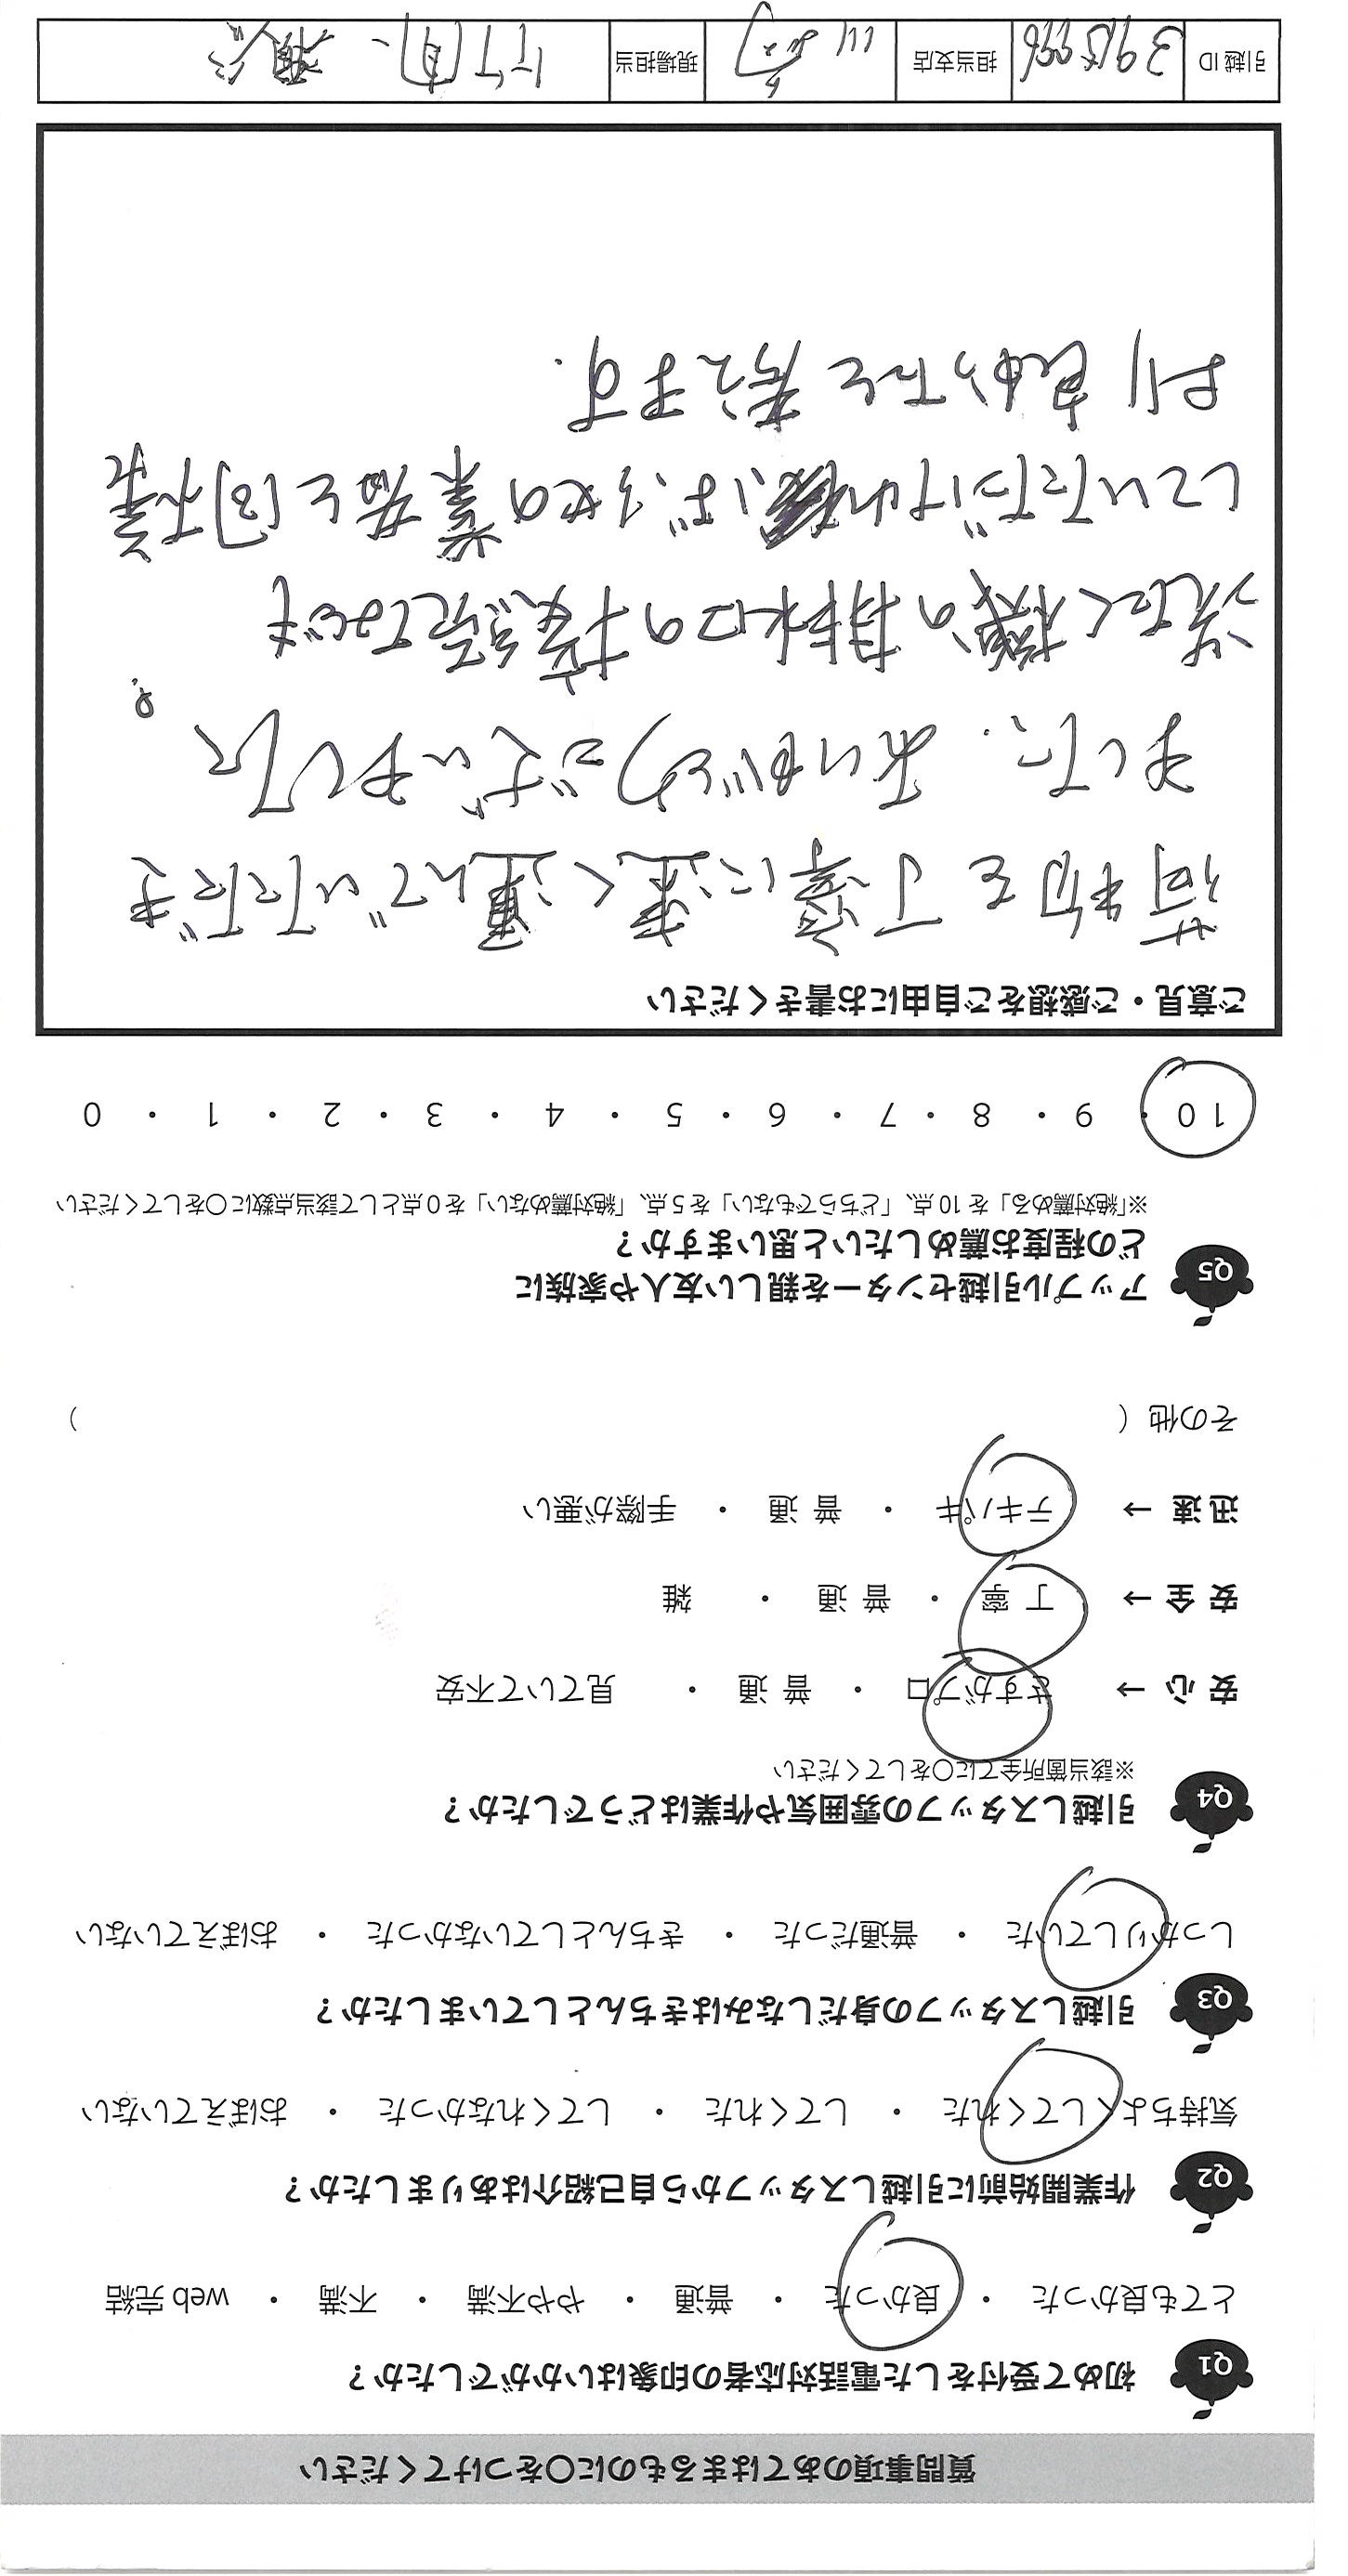 質問事項のあてはまるものに〇をつけてください
Q1 初めて受付をした電話対応者の印象はいかがでしたか？
とても良かった ・ 良かった ・ 普通 ・ やや不満 ・ 不満 ・ web 完結
Q2 作業開始前に引越しスタッフから自己紹介はありましたか？
気持ちよくしてくれた ・ してくれた ・ してくれなかった ・ おぼえていない
Q3 引越しスタッフの身だしなみはきちんとしていましたか？
しっかりしていた ・ 普通だった ・ きちんとしていなかった ・ おぼえていない
Q4 引越しスタッフの雰囲気や作業はどうでしたか？
※該当箇所全てに〇をしてください
安 心 → さすがプロ ・ 普 通 ・ 見ていて不安
安 全 → 丁 寧 ・ 普 通 ・ 雑
迅 速 → テキパキ ・ 普 通 ・ 手際が悪い
その他（ ）
Q5 アップル引越センターを親しい友人や家族に
どの程度お薦めしたいと思いますか？
※「絶対薦める」を 10 点、「どちらでもない」を 5 点、「絶対薦めない」を 0 点として該当点数に〇をしてください
10 ・ 9 ・ 8 ・ 7 ・ 6 ・ 5 ・ 4 ・ 3 ・ 2 ・ 1 ・ 0
ご意見・ご感想をご自由にお書きください
荷物を丁寧に速く運んでいただき
ました。ありがとうございました。
洗たく機の排水口の接続なども
していただければ、他の業者と同様
より良かったと考えます。
引越 ID 担当支店 現場担当 竹内、